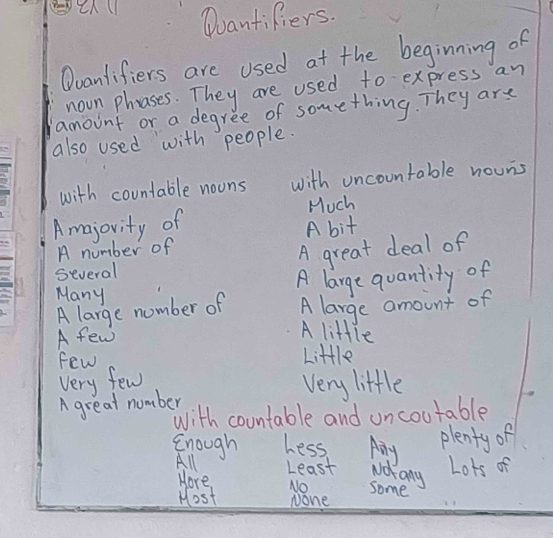 Quantifiers.
Quantifiers are used at the beginning of
noun phrases. They are used to express an
amount or a degree of something. They are
also used with people.
with countable nouns
A majority of
A number of
Several
Many
A large number of
A few
few
Very few
A great number
with uncountable nouns
Much
A bit
A great deal of
A large quantity of
A large amount of
A little
Little
Very little
With countable and uncoutable
Enough Less Any plenty of
All Least Not any Lots of
More No some
Most None